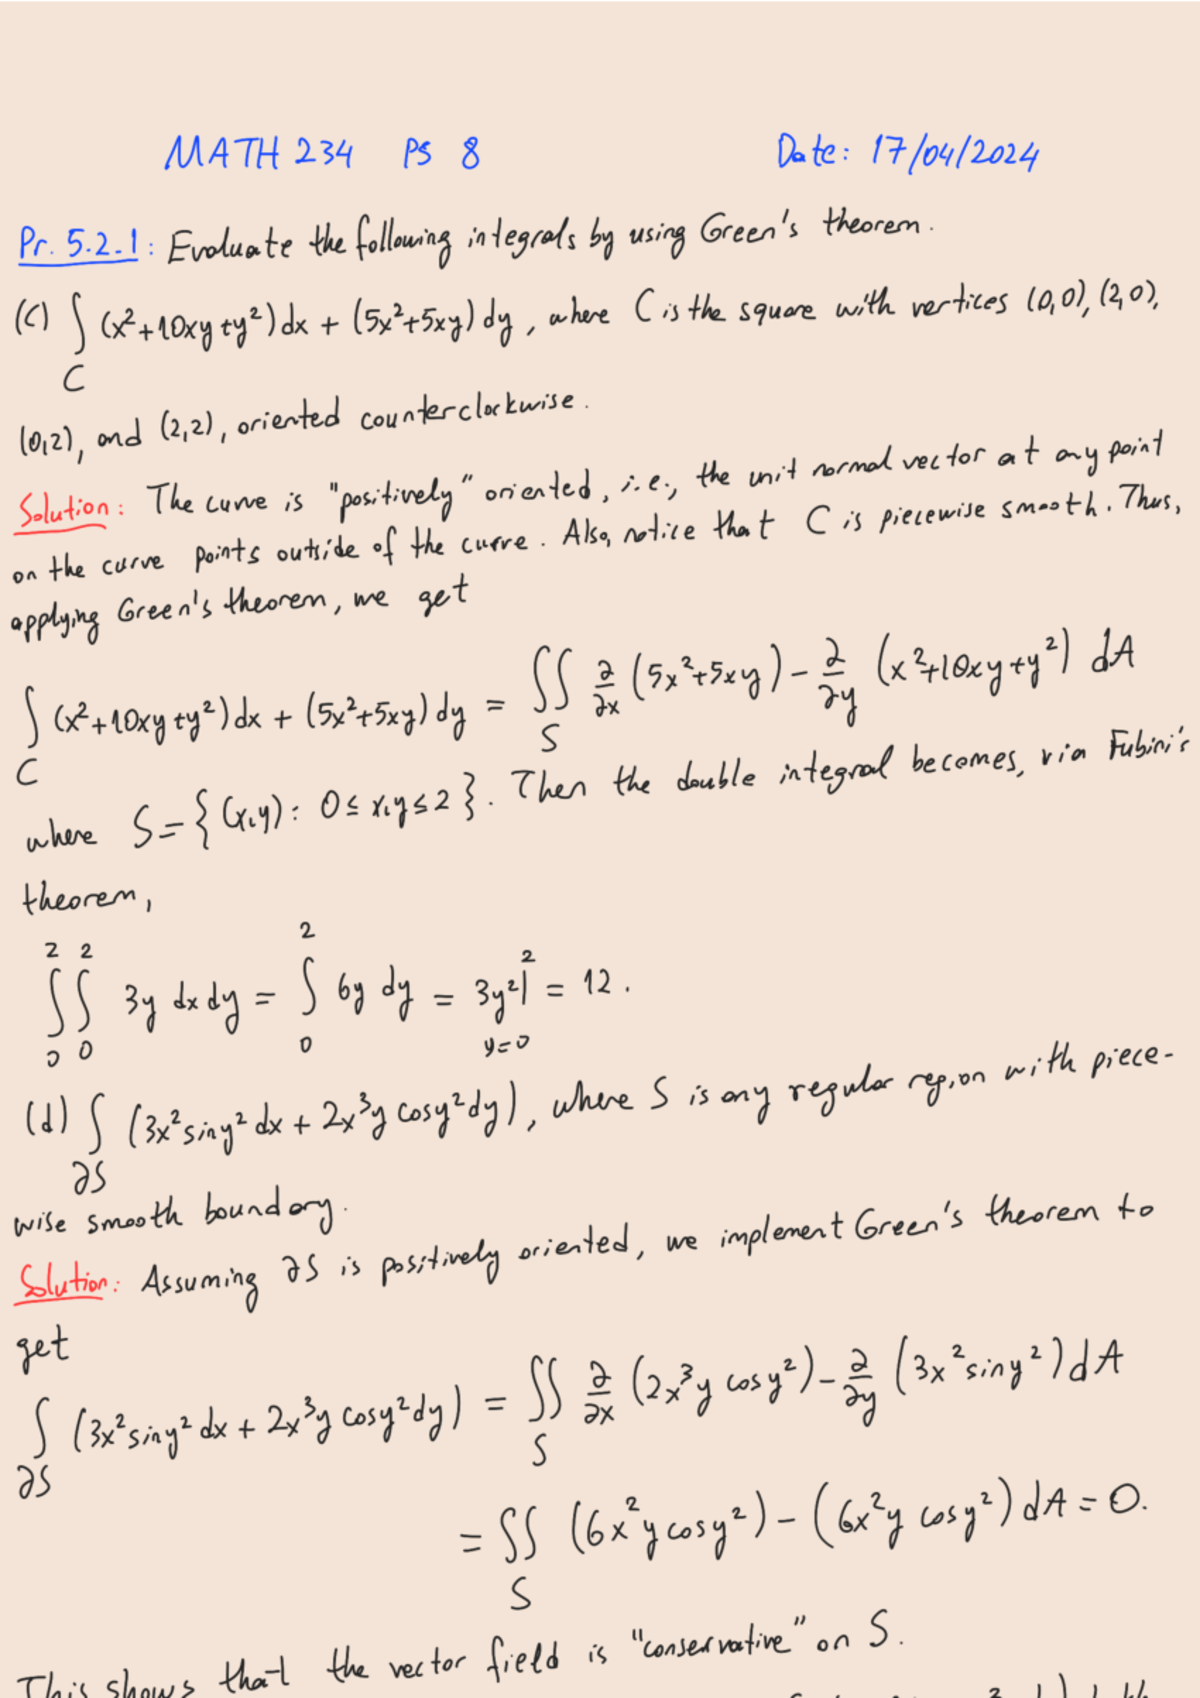 MATH 234 PS 8 Date: 17/04/2024
Pr. 5.2.1: Evaluate the following integrals by using Green's theorem.
(c) ∫_C (x²+10xy+y²)dx + (5x²+5xy)dy, where C is the square with vertices (0,0), (2,0),
(0,2), and (2,2), oriented counterclockwise.
Solution: The curve is "positively" oriented, i.e., the unit normal vector at any point
on the curve points outside of the curve. Also, notice that C is piecewise smooth. Thus,
applying Green's theorem, we get
∫_C (x²+10xy+y²)dx + (5x²+5xy)dy = ∬_S ∂/∂x (5x²+5xy) - ∂/∂y (x²+10xy+y²) dA
where S = {(x,y): 0≤x,y≤2}. Then the double integral becomes, via Fubini's
theorem,
∫_0^2 ∫_0^2 3y dx dy = ∫_0^2 6y dy = 3y²|_{y=0}^2 = 12.
(d) ∫_∂S (3x² sin y² dx + 2x³y cos y² dy), where S is any regular region with piece-
wise smooth boundary.
Solution: Assuming ∂S is positively oriented, we implement Green's theorem to
get
∫_∂S (3x² sin y² dx + 2x³y cos y² dy) = ∬_S ∂/∂x (2x³y cos y²) - ∂/∂y (3x² sin y²) dA
= ∬_S (6x²y cos y²) - (6x²y cos y²) dA = 0.
This shows that the vector field is "conservative" on S.